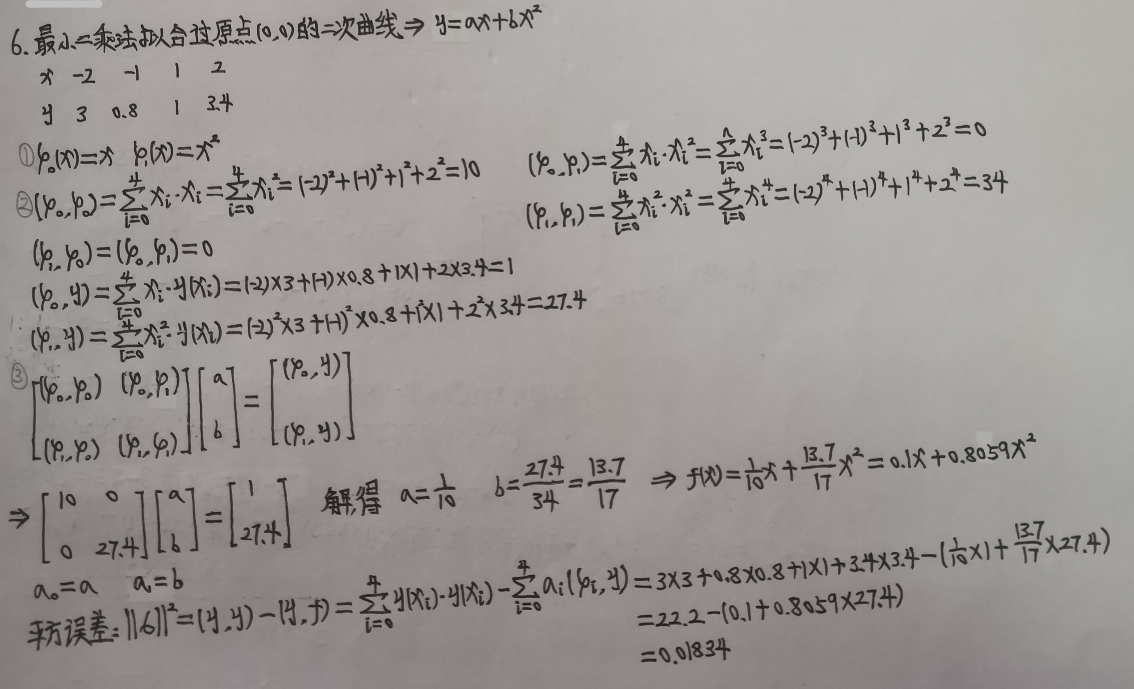 6. 最小二乘法拟合过原点(0,0)的二次曲线 ⇒ y=ax+bx²
x -2 -1 1 2
y 3 0.8 1 3.4
① φ₀(x)=x φ₁(x)=x²
② (φ₀,φ₀)=∑_{i=0}^{4} xᵢ·xᵢ=∑_{i=0}^{4} xᵢ²=(-2)²+(-1)²+1²+2²=10 (φ₀,φ₁)=∑_{i=0}^{4} xᵢ·xᵢ²=∑_{i=0}^{n} xᵢ³=(-2)³+(-1)³+1³+2³=0
(φ₁,φ₀)=(φ₀,φ₁)=0 (φ₁,φ₁)=∑_{i=0}^{4} xᵢ²·xᵢ²=∑_{i=0}^{4} xᵢ⁴=(-2)⁴+(-1)⁴+1⁴+2⁴=34
(φ₀,y)=∑_{i=0}^{4} xᵢ·y(xᵢ)=(-2)×3+(-1)×0.8+1×1+2×3.4=1
(φ₁,y)=∑_{i=0}^{4} xᵢ²·y(xᵢ)=(-2)²×3+(-1)²×0.8+1²×1+2²×3.4=27.4
③ [(φ₀,φ₀) (φ₀,φ₁)] [a] = [(φ₀,y)]
[(φ₁,φ₀) (φ₁,φ₁)] [b] [(φ₁,y)]
⇒ [10 0] [a] = [1] 解得 a=1/10 b=27.4/34=13.7/17 ⇒ f(x)=1/10x+13.7/17x²=0.1x+0.8059x²
[0 27.4] [b] [27.4]
a₀=a a₁=b
平方误差: ||δ||²=(y,y)-(y,f)=∑_{i=0}^{4} y(xᵢ)·y(xᵢ)-∑_{i=0}^{4} aᵢ(φᵢ,y)=3×3+0.8×0.8+1×1+3.4×3.4-(1/10×1+13.7/17×27.4)
=22.2-(0.1+0.8059×27.4)
=0.01834